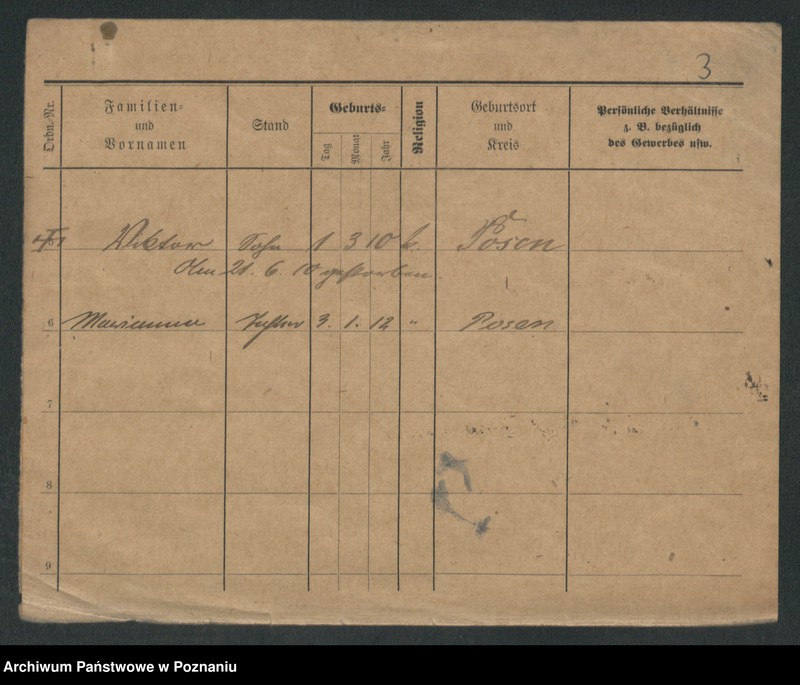 3
Ordn.-Nr.
Familien-
und
Vornamen
Stand
Geburts-
Tag
Monat
Jahr
Religion
Geburtsort
und
Kreis
Persönliche Verhältnisse
z. B. bezüglich
des Gewerbes usw.
Viktor Sohn 1 3 10 k. Posen
den 21. 6. 10 gestorben.
6 Marianna Tochter 3. 1. 12 " Posen
7
8
9
Archiwum Państwowe w Poznaniu